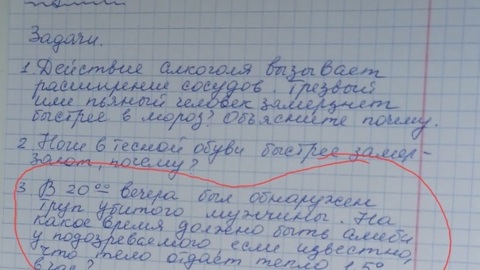 Задачи.
1. Действие алкоголя вызывает
расширение сосудов. Трезвый
или пьяный человек замерзнет
быстрее в мороз? Объясните почему.
2. Ноги в тесной обуви быстрее замер-
зают, почему?
3. В 20⁰⁰ вечера был обнаружен
труп убитого мужчины. На
какое время должно быть алиби
у подозреваемого если известно,
что тело отдает тепло 1,5°
в час?